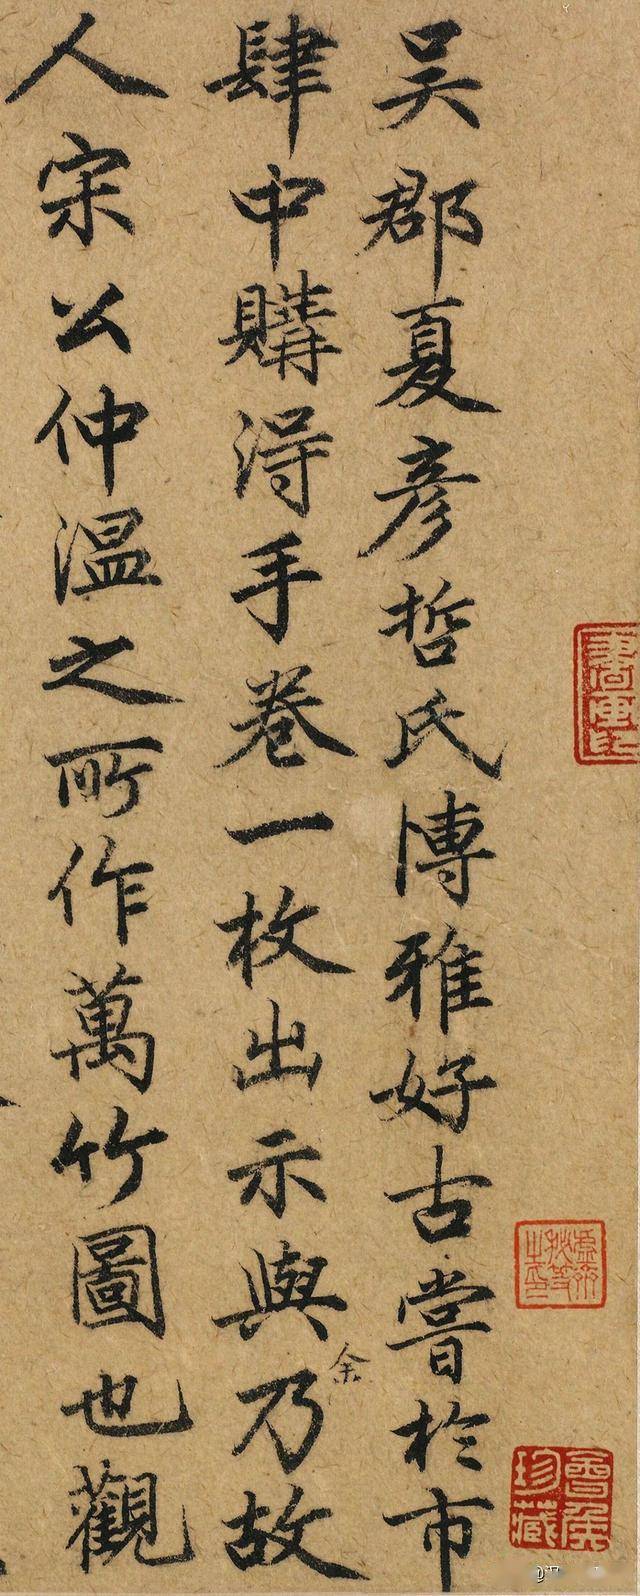 吴郡夏彦哲氏博雅好古嘗於市
肆中購得手卷一枚出示與乃故
余
人宋公仲温之所作萬竹圖也觀
珍藏